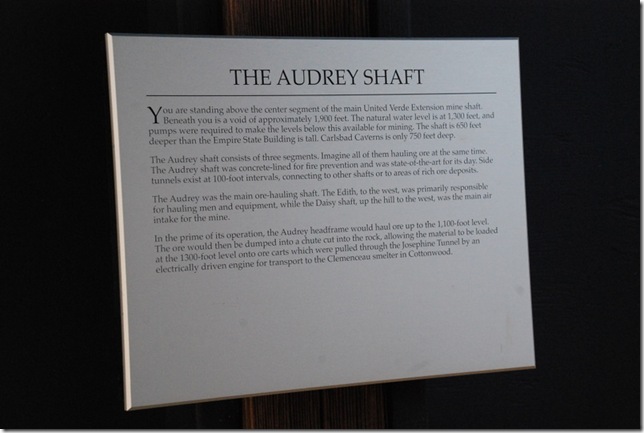 THE AUDREY SHAFT
You are standing above the center segment of the main United Verde Extension mine shaft.
Beneath you is a void of approximately 1,900 feet. The natural water level is at 1,300 feet, and
pumps were required to make the levels below this available for mining. The shaft is 650 feet
deeper than the Empire State Building is tall. Carlsbad Caverns is only 750 feet deep.
The Audrey shaft consists of three segments. Imagine all of them hauling ore at the same time.
The Audrey shaft was concrete-lined for fire prevention and was state-of-the-art for its day. Side
tunnels exist at 100-foot intervals, connecting to other shafts or to areas of rich ore deposits.
The Audrey was the main ore-hauling shaft. The Edith, to the west, was primarily responsible
for hauling men and equipment, while the Daisy shaft, up the hill to the west, was the main air
intake for the mine.
In the prime of its operation, the Audrey headframe would haul ore up to the 1,100-foot level.
The ore would then be dumped into a chute cut into the rock, allowing the material to be loaded
at the 1300-foot level onto ore carts which were pulled through the Josephine Tunnel by an
electrically driven engine for transport to the Clemenceau smelter in Cottonwood.